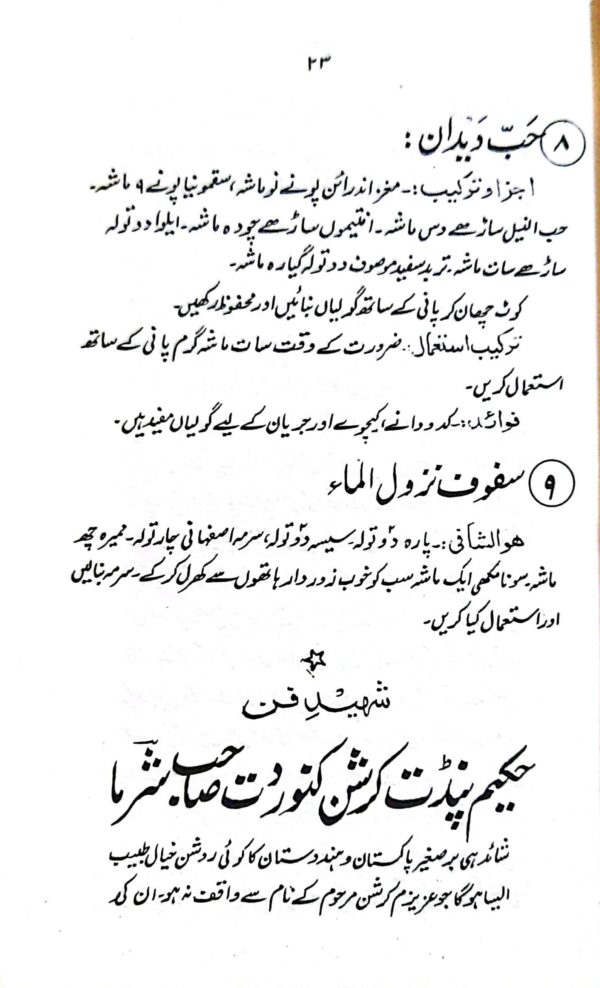 ۲۳
۸ حَبِّ دِیدان :
اجزاء و ترکیب :۔ مغز اندرائن پونے نو ماشہ، سقمونیا پونے ۹ ماشہ۔
حب النیل ساڑھے دس ماشہ۔ افتیموں ساڑھے چودہ ماشہ۔ ایلوا دو تولہ
ساڑھے سات ماشہ۔ تربد سفید موصوف دو تولہ گیارہ ماشہ۔
کوٹ چھان کر پانی کے ساتھ گولیاں بنائیں اور محفوظ رکھیں۔
ترکیب استعمال :۔ ضرورت کے وقت سات ماشہ گرم پانی کے ساتھ
استعمال کریں۔
فوائد :۔ کدو دانے، کیچوے اور جریان کے لیے گولیاں مفید ہیں۔
۹ سفوف نزول الماء
ھوالشافی :۔ پارہ دو تولہ، سیسہ دو تولہ، سرمہ اصفہانی چار تولہ۔ ممیرہ چھ
ماشہ۔ سونا مکھی ایک ماشہ سب کو خوب زور دار ہاتھوں سے کھرل کر کے۔ سرمہ بنالیں
اور استعمال کیا کریں۔
شہیدِ فن
حکیم پنڈت کرشن کنور دت صاحب شرما
شائد ہی برصغیر پاکستان و ہندوستان کا کوئی روشن خیال طبیب
ایسا ہوگا جو عزیزم کرشن مرحوم کے نام سے واقف نہ ہو۔ ان کی